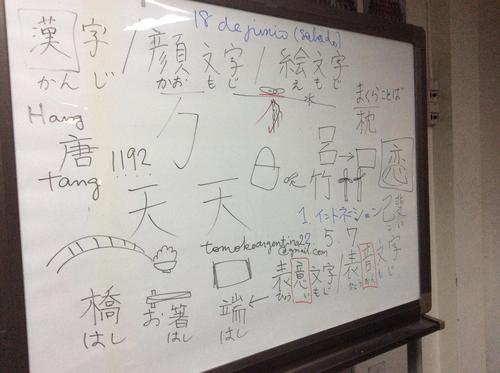 18 de junio (Sabado)
漢字/顔文字/絵文字
かんじ かおもじ えもじ
Hang
唐
tang
1192
まくらことば
枕
呂→口
竹
恋
天 天
1.イントネーション
5.7
tomokoargentina22
@gmail.com
表意文字/表音文字
ひょう い もじ
橋 お箸 端←
はし はし はし